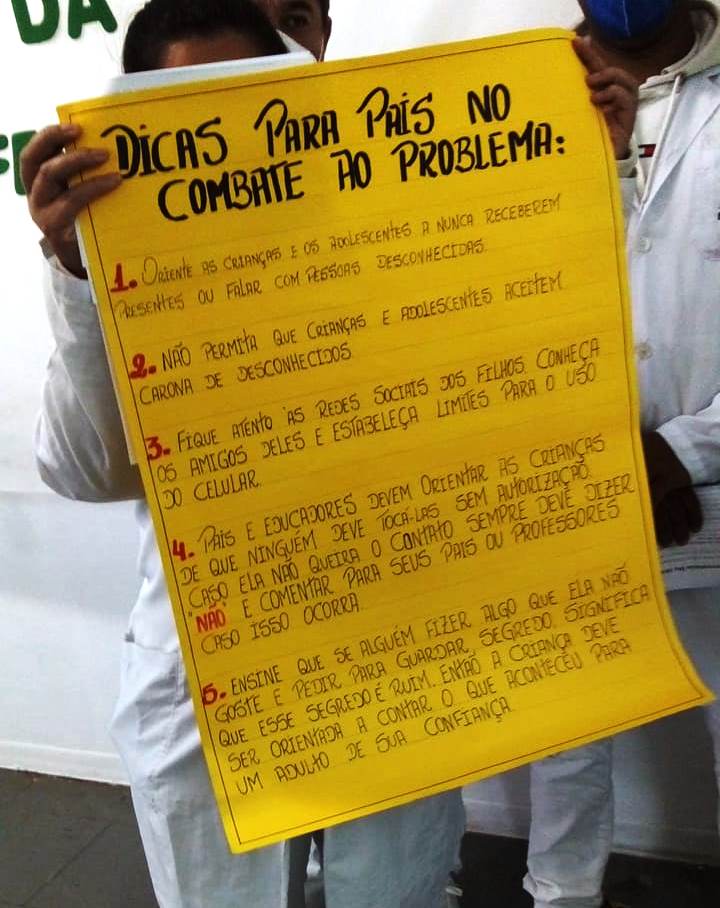 DA
DICAS PARA PAÍS NO
COMBATE AO PROBLEMA:
1. ORIENTE AS CRIANÇAS E OS ADOLESCENTES A NUNCA RECEBEREM
PRESENTES OU FALAR COM PESSOAS DESCONHECIDAS.
2. NÃO PERMITA QUE CRIANÇAS E ADOLESCENTES ACEITEM
CARONA DE DESCONHECIDOS
3. FIQUE ATENTO AS REDES SOCIAIS DOS FILHOS. CONHEÇA
OS AMIGOS DELES E ESTABELEÇA LIMITES PARA O USO
DO CELULAR.
4. PAÍS E EDUCADORES DEVEM ORIENTAR AS CRIANÇAS
DE QUE NINGUÉM DEVE TOCÁ-LAS SEM AUTORIZAÇÃO.
CASO ELA NÃO QUEIRA O CONTATO SEMPRE DEVE DIZER
"NÃO" E COMENTAR PARA SEUS PAIS OU PROFESSORES
CASO ISSO OCORRA.
5. ENSINE QUE SE ALGUÉM FIZER ALGO QUE ELA NÃO
GOSTE E PEDIR PARA GUARDAR, SEGREDO. SIGNIFICA
QUE ESSE SEGREDO É RUIM. ENTÃO A CRIANÇA DEVE
SER ORIENTADA A CONTAR O QUE ACONTECEU PARA
UM ADULTO DE SUA CONFIANÇA.